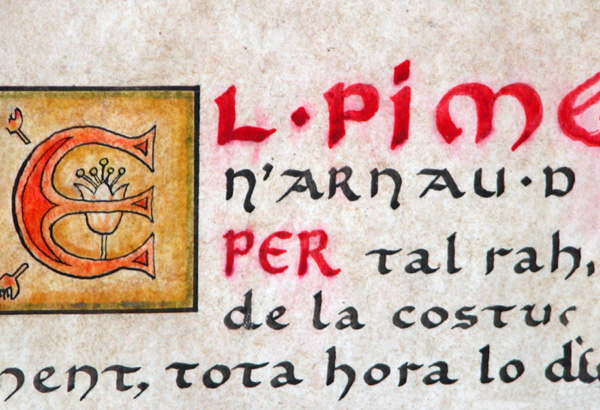 EL·PIME
N'ARNAU·D
PER tal rah,
de la costuc
ment, tota hora lo di